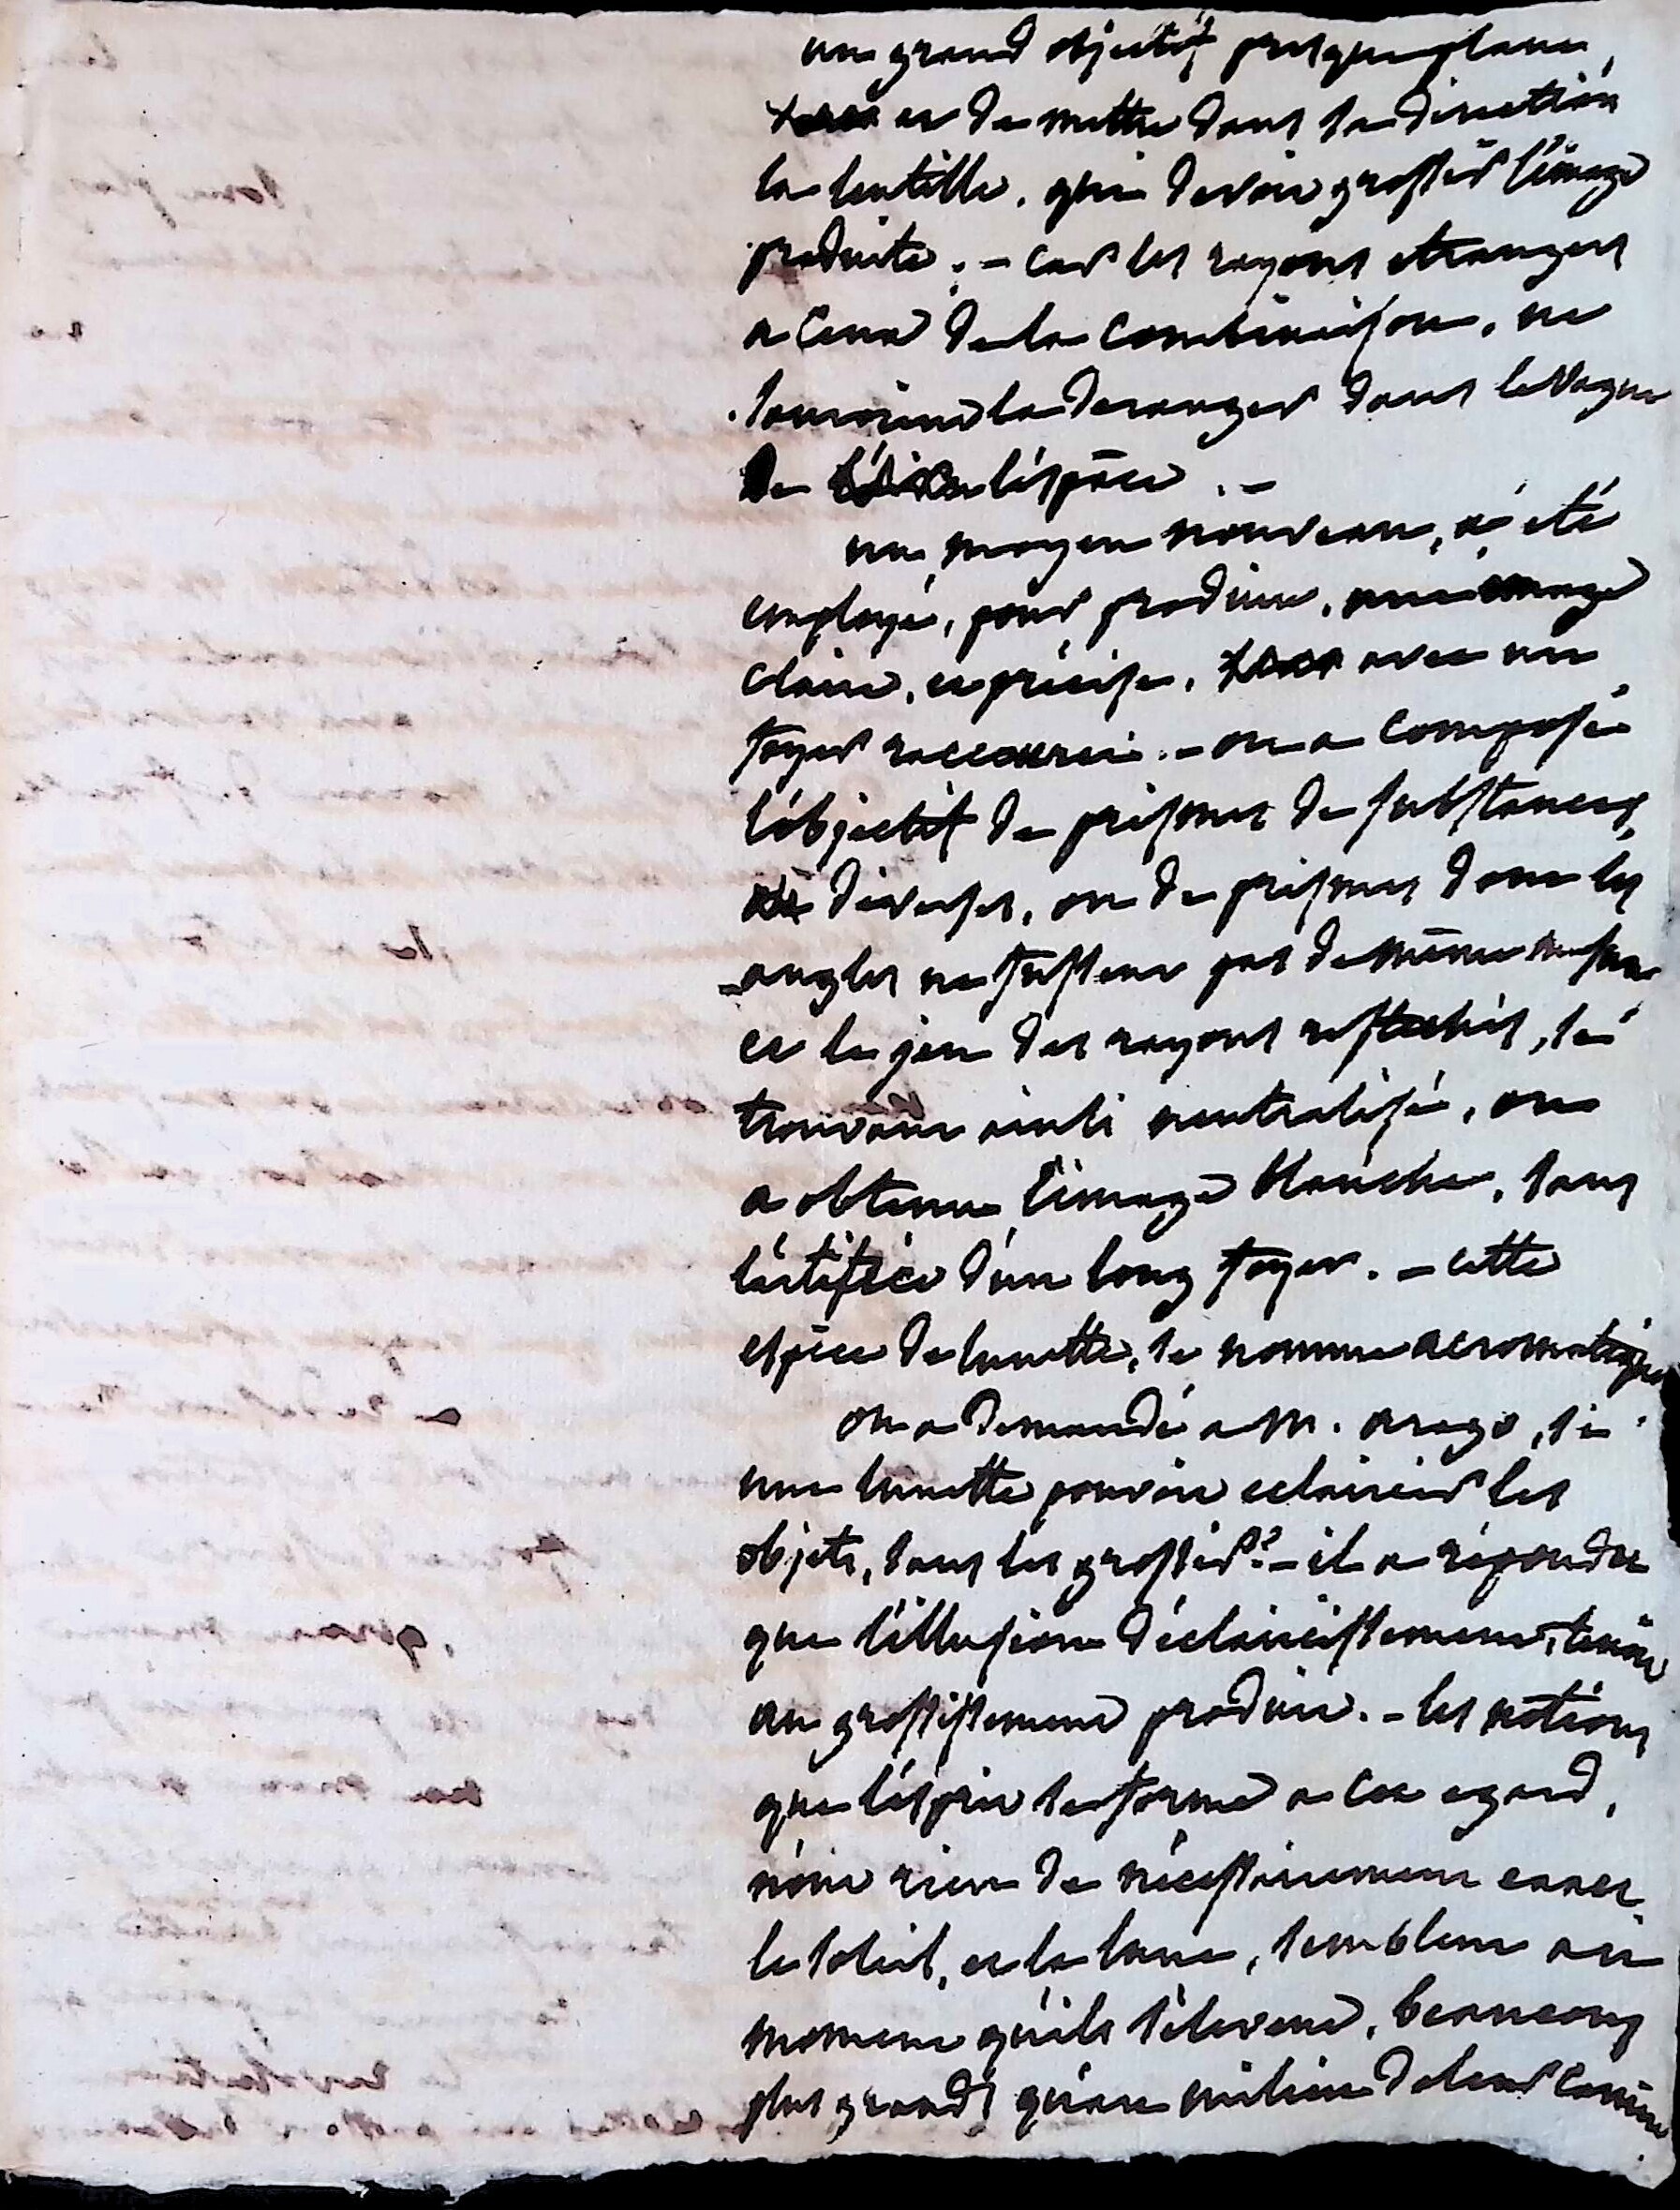 un grand objectif presque plane,
et de mettre dans sa direction
la lentille, qui devoit grossir l'image
produite. - car les rayons etrangers
a ceux de la combinaison, ne
sauroient la deranger dans le vague
de l'éspace. -
un moyen nouveau, a été
employé, pour produire, une image
claire, et précise, avec un
foyer raccourci. - on a composé
l'objectif de prismes de substances,
diverses, ou de prismes dont les
angles ne fussent pas de même mesure
et le jeu des rayons reflechis, se
trouvant ainsi neutralisé, on
a obtenu l'image blanche, sans
l'artifice d'un long foyer. - cette
espèce de lunette, se nomme acromatique
on a demandé a M. arago, si
une lunette pouvoit eclaircir les
objets, sans les grossir? - il a répondu
que l'illusion d'éclaircissement, tenoit
au grossissement produit. - les notions
que l'ésprit se forme a cet egard,
n'ont rien de nécessairement exact
le soleil, et la lune, semblent au
moment qu'ils s'élevent, beaucoup
plus grands qu'au milieu de leur course